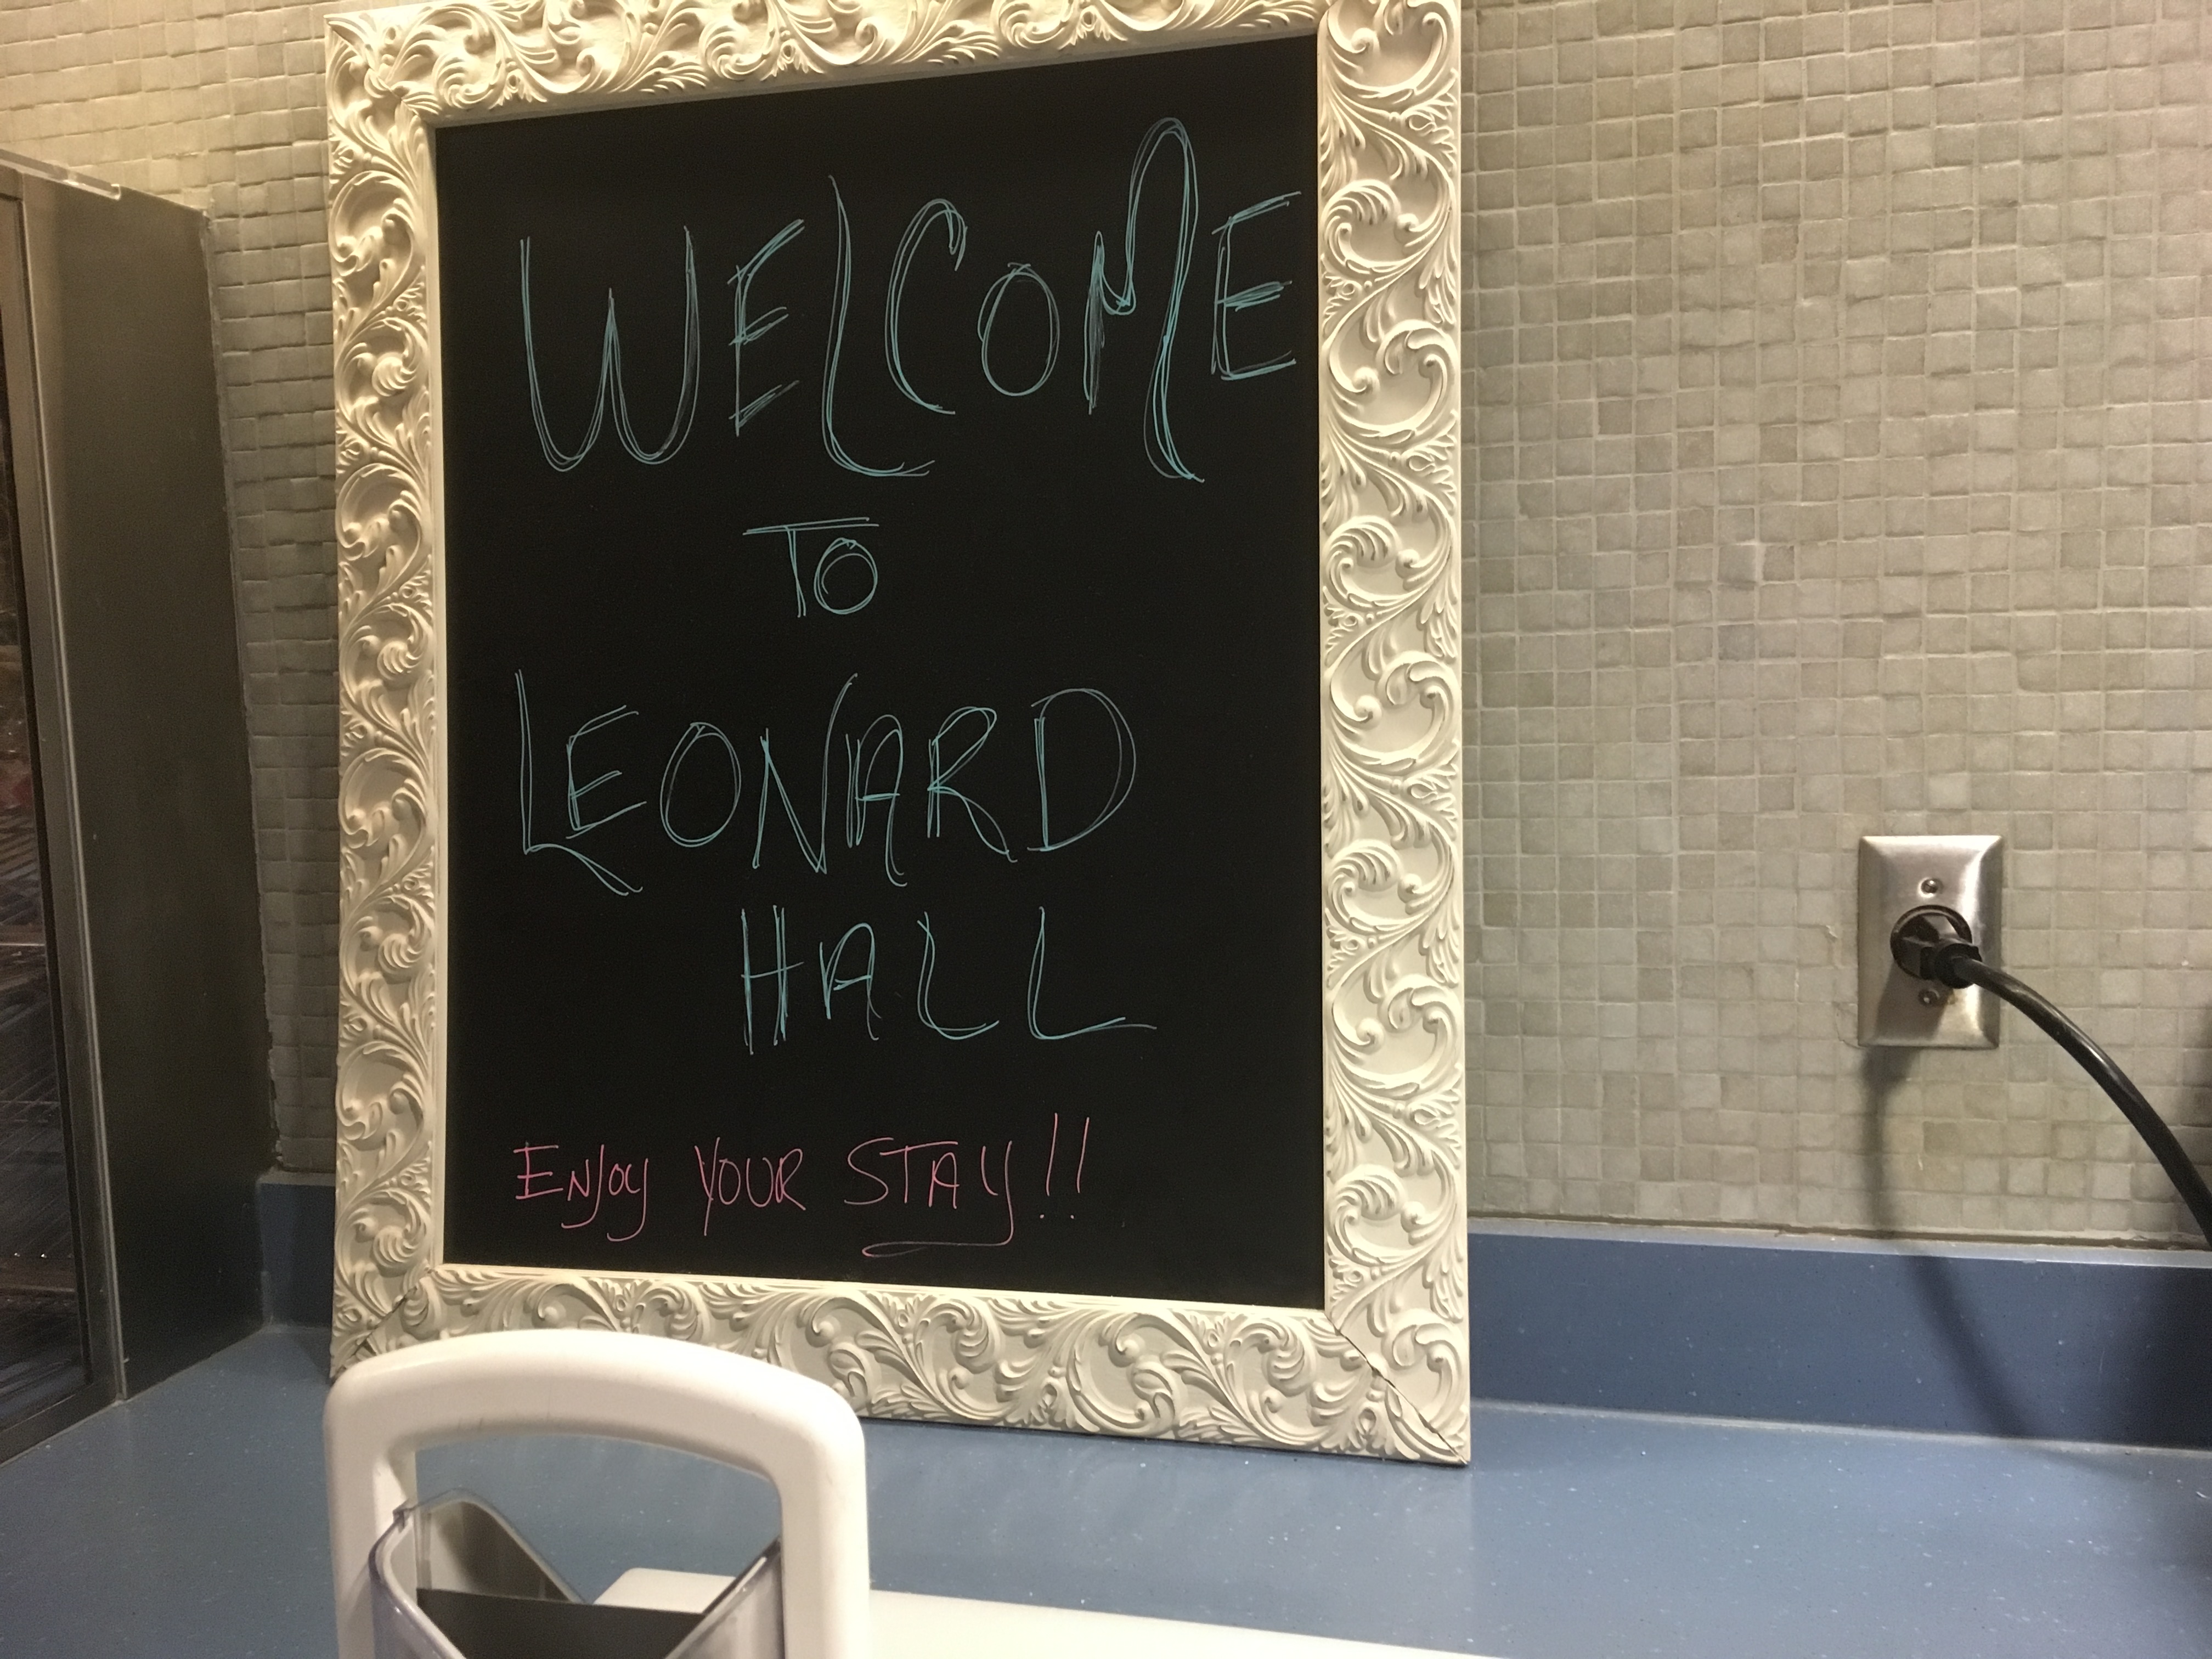 WELCOME
TO
LEONARD
HALL
ENJOY YOUR STAY!!